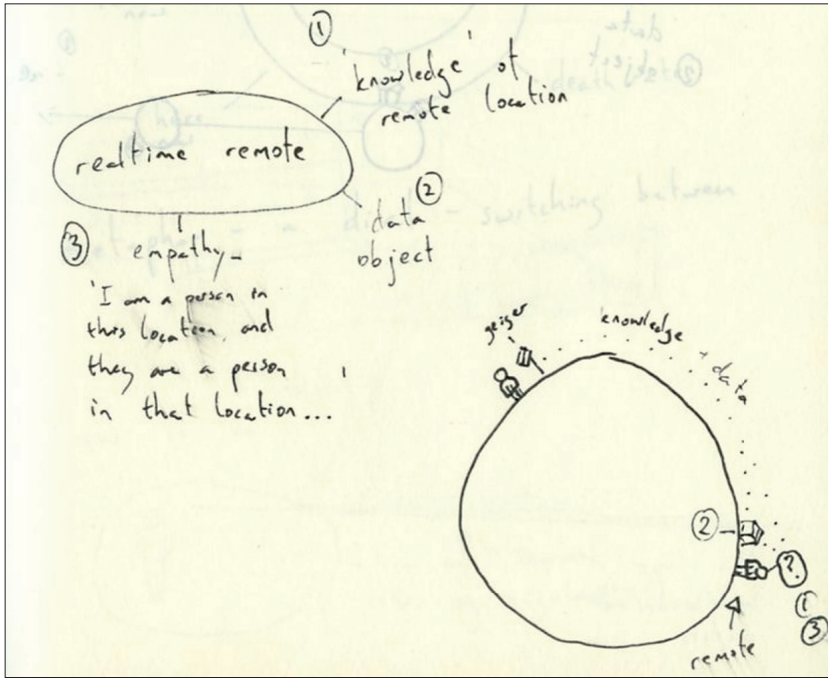 ①
'knowledge' of
remote location
realtime remote
②
data
object
③
empathy –
'I am a person in
this location and
they are a person
in that location...'
geiger
knowledge + data
②
?
①
③
remote
death
switching between